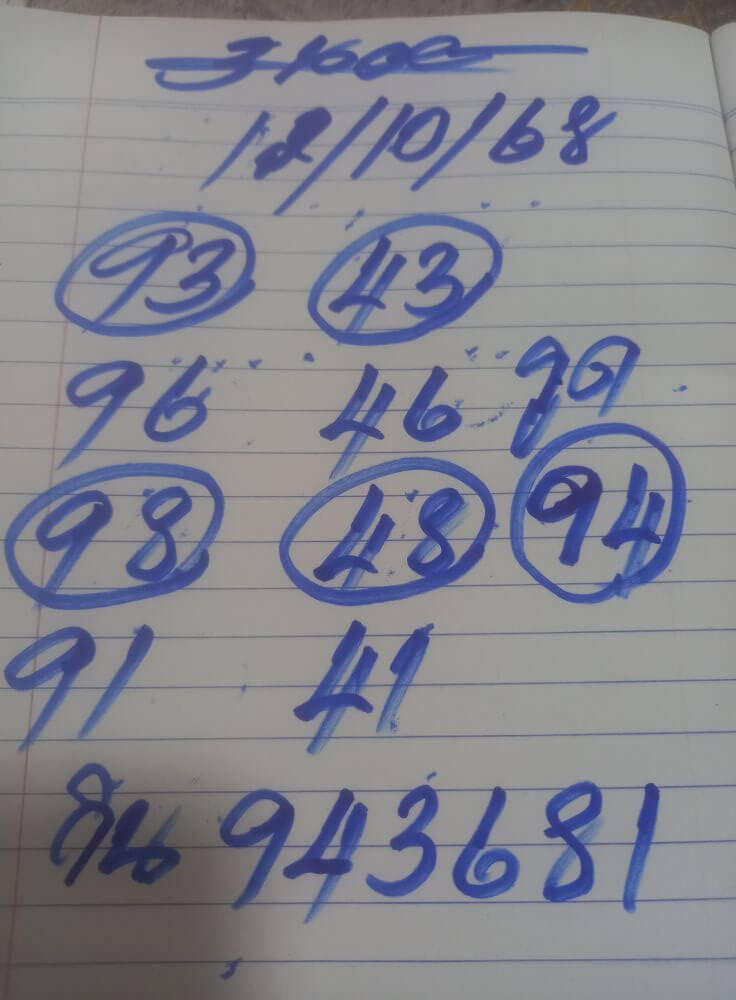 12/10/68
93 43
96 46 รูด
98 48 94
91 41
วิน 943681